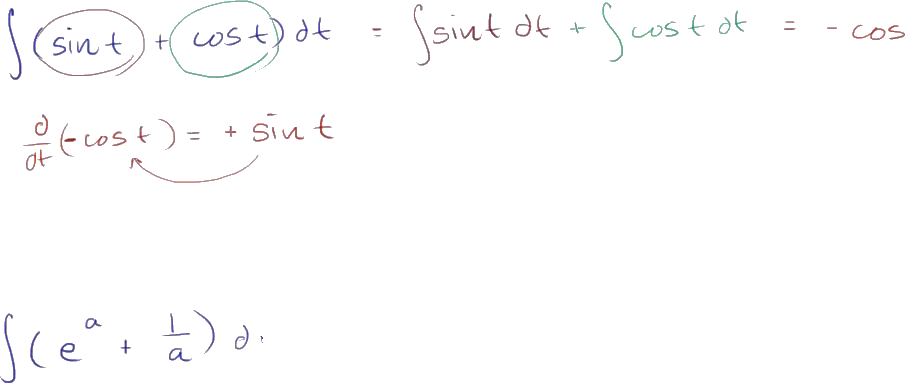 ∫(sin t + cos t) dt = ∫sin t dt + ∫cos t dt = - cos
d/dt (-cos t) = + sin t
∫(e^a + 1/a) d